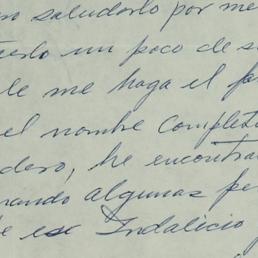 saludarlo por me
un poco de s
le me haga el
el nombre Complet
dero, he encontra
ando algunas pe
e ese Indalicio